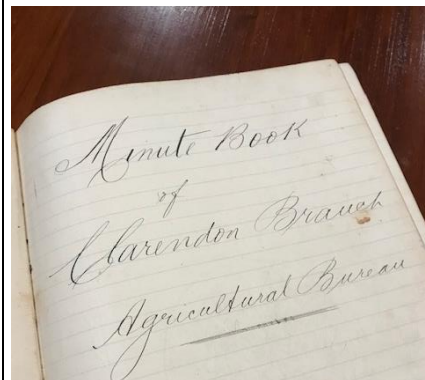 Minute Book
of
Clarendon Branch
Agricultural Bureau